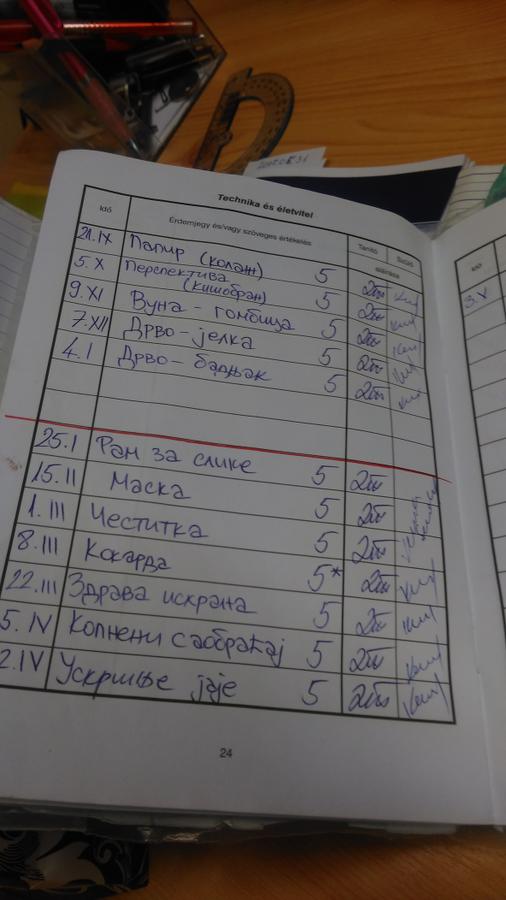 Technika és életvitel
Idő Érdemjegy és/vagy szöveges értékelés Tanító Szülő
aláírása
21.IX Папир (колаж) 5
5.X Перспектива (кишобран) 5
9.XI Вуна - гомбица 5
7.XII Дрво - јелка 5
4.I Дрво - бадњак 5
25.I Рам за слике 5
15.II Маска 5
1.III Честитка 5
8.III Кокарда 5*
22.III Здрава исхрана 5
5.IV Копнени саобраћај 5
2.IV Ускршње јаје 5
24
Idő
3.X